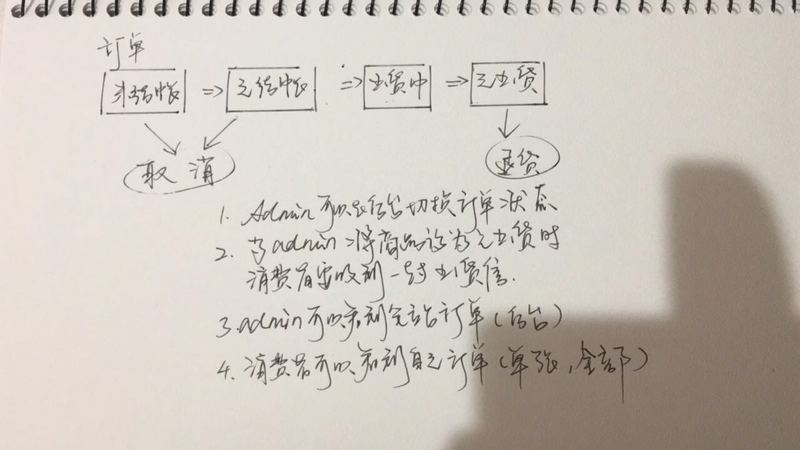 订单
未结帐 => 已结帐 => 出货中 => 已出货
取消 退货
1. Admin 可以在后台切换订单状态
2. 当admin将商品设为已出货时
消费者要收到一封出货信.
3. admin可以看到全站订单(后台)
4. 消费者可以看到自己订单(单张,全部)